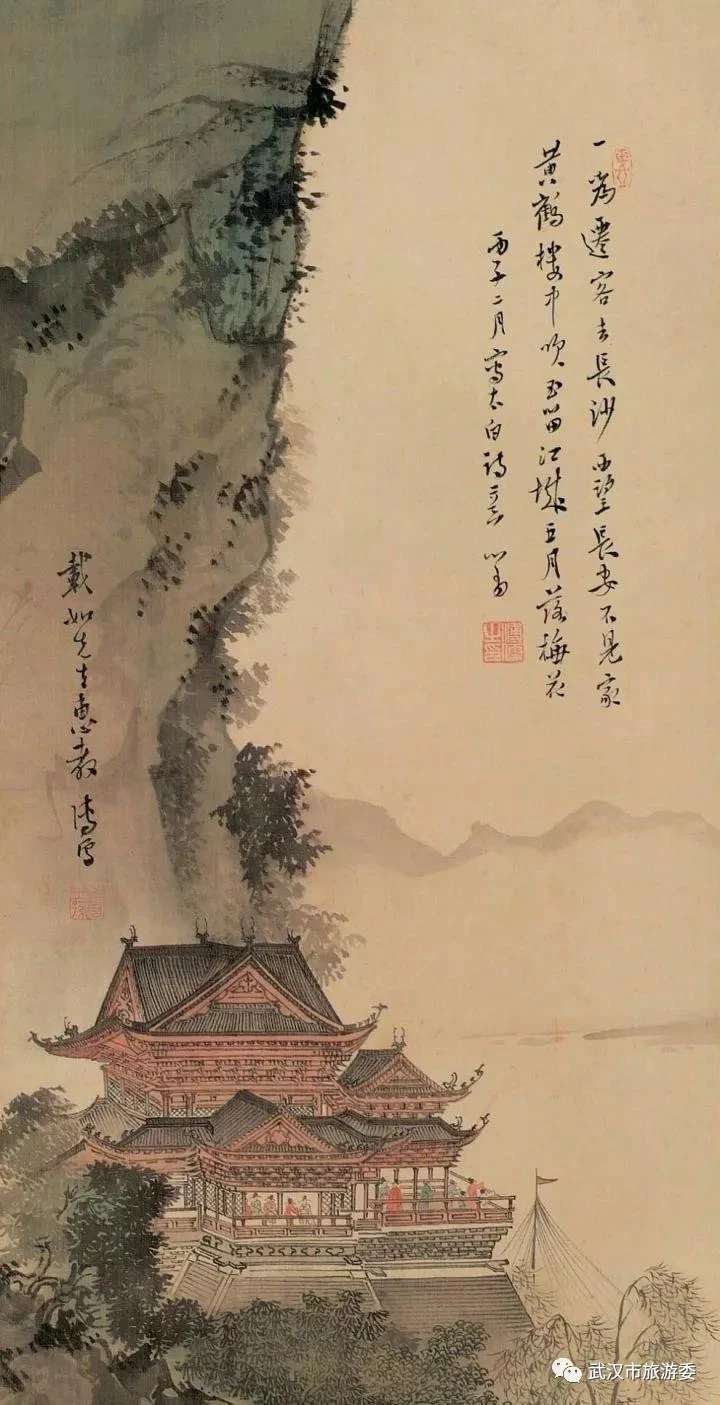 一為遷客去長沙西望長安不見家
黃鶴樓中吹玉笛江城五月落梅花
丙子二月寫太白詩意 心畬
載如先生惠教 溥儒
武汉市旅游委